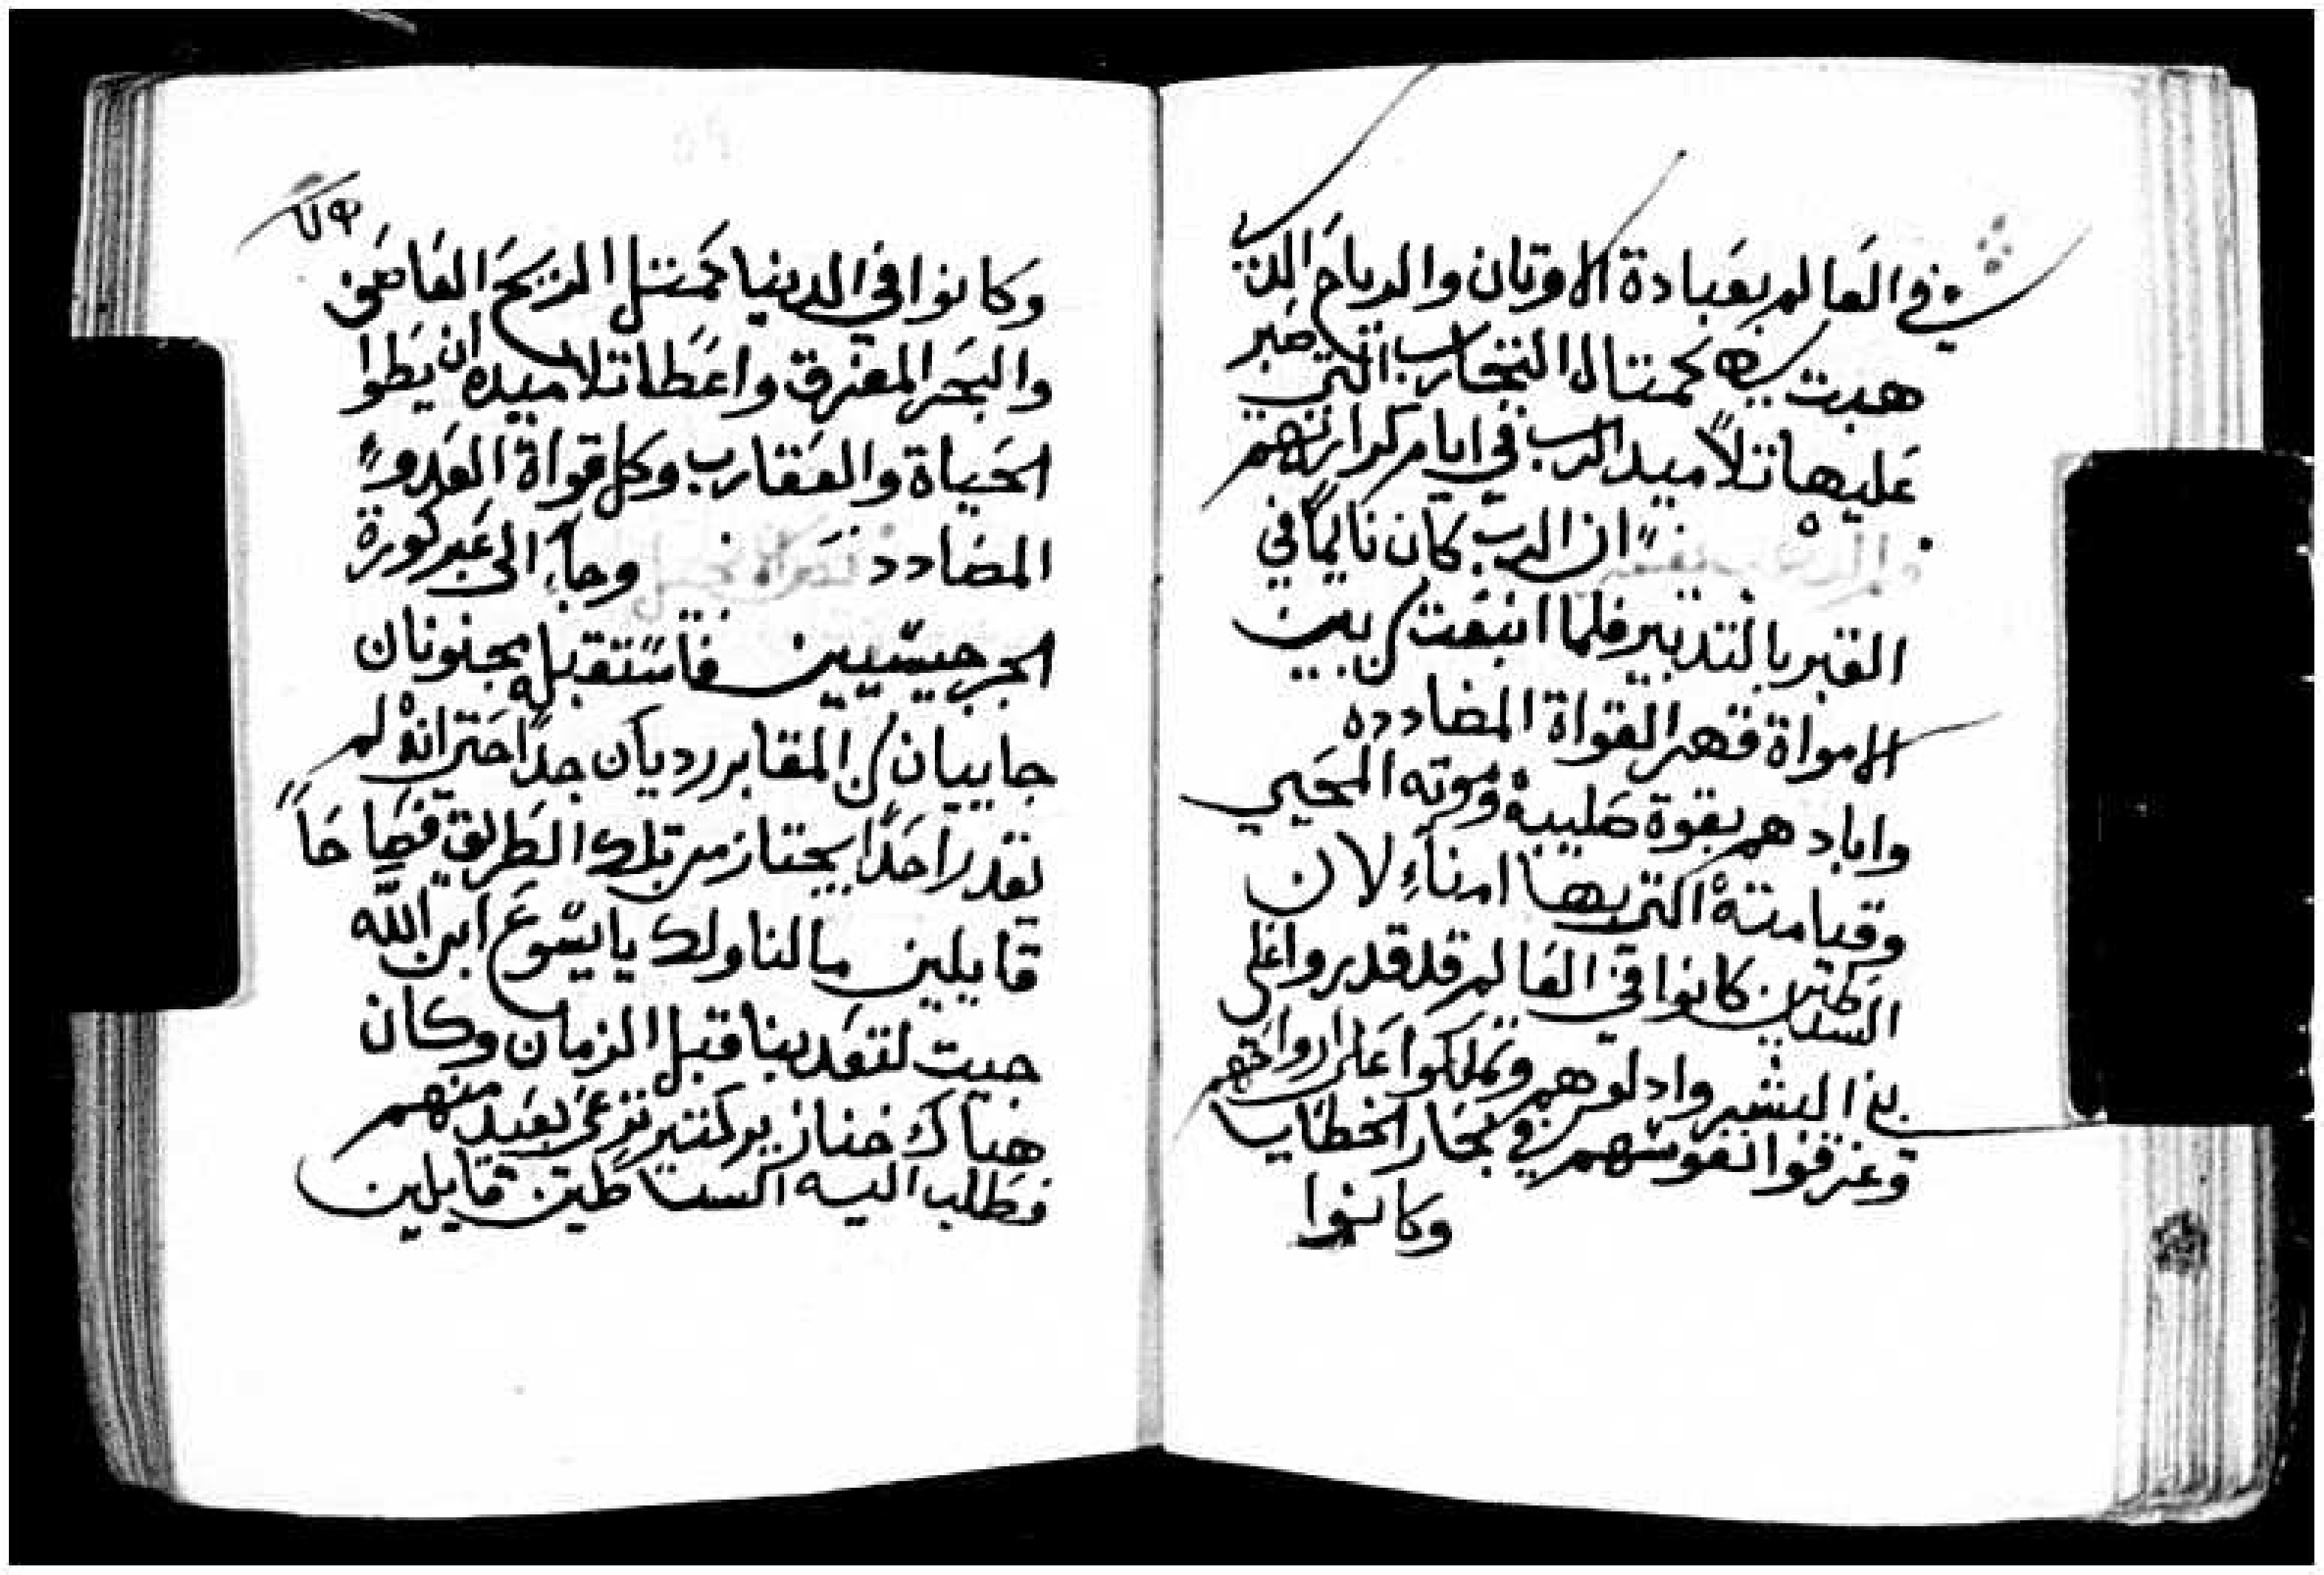 في العالم بعبادة الاوتان والرياح الدي
هبت هي كمتال التجارب التي صبر
عليها تلاميد الرب في ايام كرازتهم
ان الرب كان نايمًا في
القبر بالتدبير فلما انبعت من بين
الامواة قهر القواة المضادده
وابادهم بقوة صليبه وموته المحيي
وقيامته التي بها امناء لان
الشياطين كانوا في العالم قد قدروا علي
بني البشر وادلوهم وتملكوا علي ارواحهم
وغرقوا نفوسهم في بحار الخطايا
وكانوا
٧٩
وكانوا في الدينا كمتل الريح العاصف
والبحر المغرق واعطا تلاميده ان يطوا
الحياة والعقارب وكل قواة العدو
المضادد وجاء الى عبر كورة
الجرجيسيين فاستقبله مجنونان
جاييان من المقابر رديان جدًا حتي انه لم
يقدر احدًا يجتاز من تلك الطريق فصاحا
قايلين ما لنا ولك يا يسوع ابن الله
جيت لتعدبنا قبل الزمان وكان
هناك خنازير كتير ترعي بعيد منهم
فطلب اليه الشياطين قايلين